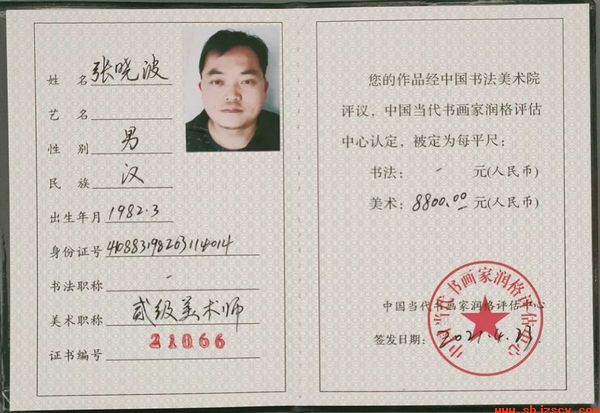 姓 名 张晓波
艺 名
性 别 男
民 族 汉
出生年月 1982.3
身份证号 410883198203114014
书法职称 -
美术职称 贰级美术师
证书编号 21066
您的作品经中国书法美术院
评议，中国当代书画家润格评估
中心认定，被定为每平尺：
书法： - 元(人民币)
美术：8800.00 元(人民币)
中国当代书画家润格评估中心
签发日期：2021.4.21
中国当代书画家润格评估中心
www.shjzscx.com